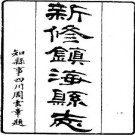 新修鎮海縣志
知縣事四川周家華題